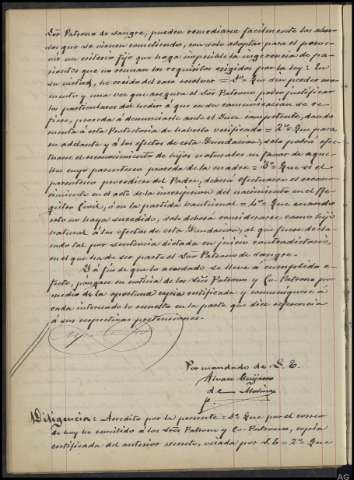 Sor Patrono de sangre, pueden remediarse facilmente los abusos
que se vienen cometiendo, con solo adoptar para el porvenir
un criterio fijo que haga imposible la ingerencia de parientes
que no reunan los requisitos exigidos por la ley: En
su virtud, he creido del caso resolver = 1º Que sin perder momento
y una vez que asegura el Sor Patrono poder justificar
los particulares del hecho á que en su comunicación se refiere,
proceda á denunciarle ante el Juez competente, dando
cuenta á esta Protectoria de haberlo verificado = 2º Que para
en adelante y á los efectos de esta Fundacion, solo podrá efectuarse
el reconocimiento de hijos naturales en favor de aquellos
cuyo parentesco proceda de la madre = 3º Que si el
parentesco procediese del Padre, deberá efectuarse el reconocimiento
en el acto de la inscripcion del nacimiento en el Registro
Civil, ó en la partida bautismal = 4º Que cuando
esto no haya sucedido, solo deberá considerarse como hijo
natural á los efectos de esta Fundacion, al que fuese declarado
tal por sentencia dictada en juicio contradictorio,
en el que ha de ser parte el Sor Patrono de sangre.
Y á fin de que lo acordado se lleve á cumplido efecto,
póngase en noticia de los Sres Patrono y Co-Patrono por
medio de la oportuna copia certificada y comuníquese á
cada interesado lo resuelto en la parte que dice referencia
á sus respectivas pretensiones.
Por mandado de S. E.
Alvaro
de Molina
Diligencia = Acredito por la presente = 1º Que por el correo
de hoy he remitido á los Sres Patrono y Co-Patrono, copia
certificada del anterior decreto, visada por S. E = 2º Que
AG